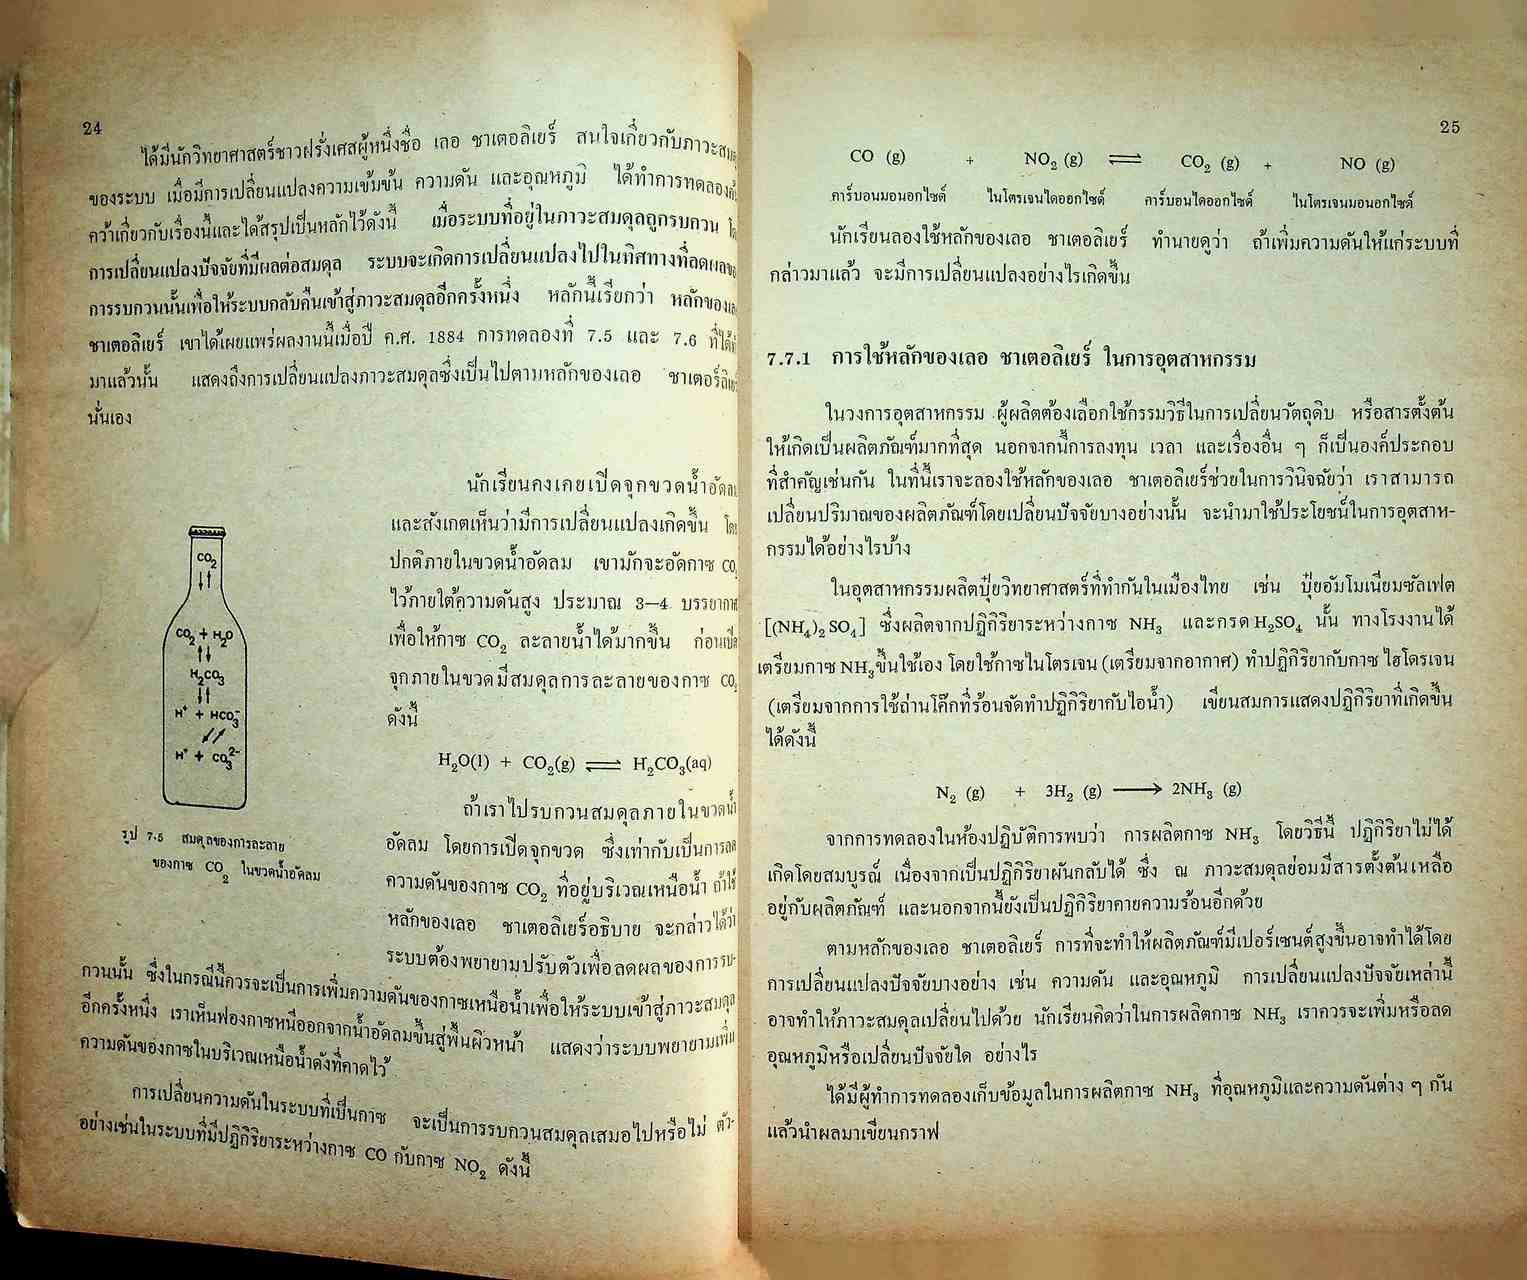 24
ได้มีนักวิทยาศาสตร์ชาวฝรั่งเศสผู้หนึ่งชื่อ เลอ ชาเตอลิเยร์ สนใจเกี่ยวกับภาวะ
ของระบบ เมื่อมีการเปลี่ยนแปลงความเข้มข้น ความดัน และอุณหภูมิ ได้ทำการทดลอง
คว้าเกี่ยวกับเรื่องนี้และได้สรุปเป็นหลักไว้ดังนี้ เมื่อระบบที่อยู่ในภาวะสมดุลถูกรบกวน
การเปลี่ยนแปลงปัจจัยที่มีผลต่อสมดุล ระบบจะเกิดการเปลี่ยนแปลงไปในทิศทางที่ลดผล
การรบกวนนั้นเพื่อให้ระบบกลับคืนเข้าสู่ภาวะสมดุลอีกครั้งหนึ่ง หลักนี้เรียกว่า หลักของ
ชาเตอลิเยร์ เขาได้เผยแพร่ผลงานนี้เมื่อปี ค.ศ. 1884 การทดลองที่ 7.5 และ 7.6
มาแล้วนั้น แสดงถึงการเปลี่ยนแปลงภาวะสมดุลซึ่งเป็นไปตามหลักของเลอ
นั่นเอง
นักเรียนคงเคยเปิดจุกขวดน้ำอัดลม
และสังเกตเห็นว่ามีการเปลี่ยนแปลงเกิดขึ้น
ปกติภายในขวดน้ำอัดลม เขามักจะอัดกาซ CO₂
ไว้ภายใต้ความดันสูง ประมาณ 3–4 บรรยากาศ
เพื่อให้กาซ CO₂ ละลายน้ำได้มากขึ้น ก่อนเปิด
จุกภายในขวดมีสมดุลการละลายของกาซ CO₂
ดังนี้
H₂O(l) + CO₂(g) ⇌ H₂CO₃(aq)
ถ้าเราไปรบกวนสมดุลภายในขวดน้ำ
อัดลม โดยการเปิดจุกขวด ซึ่งเท่ากับเป็นการลด
ความดันของกาซ CO₂ ที่อยู่บริเวณเหนือน้ำ ถ้าใช้
หลักของเลอ ชาเตอลิเยร์อธิบาย จะกล่าวได้ว่า
ระบบต้องพยายามปรับตัวเพื่อลดผลของการรบ-
กวนนั้น ซึ่งในกรณีนี้ควรจะเป็นการเพิ่มความดันของกาซเหนือน้ำเพื่อให้ระบบเข้าสู่ภาวะสมดุล
อีกครั้งหนึ่ง เราเห็นฟองกาซหนีออกจากน้ำอัดลมขึ้นสู่พื้นผิวหน้า แสดงว่าระบบพยายามเพิ่ม
ความดันของกาซในบริเวณเหนือน้ำดังที่คาดไว้
การเปลี่ยนความดันในระบบที่เป็นกาซ จะเป็นการรบกวนสมดุลเสมอไปหรือไม่ ตัว-
อย่างเช่นในระบบที่มีปฏิกิริยาระหว่างกาซ CO กับกาซ NO₂ ดังนี้
CO₂
↓↑
CO₂ + H₂O
↑↓
H₂CO₃
↓↑
H⁺ + HCO₃⁻
H⁺ + CO₃²⁻
รูป 7.5 สมดุลของการละลาย
ของกาซ CO₂ ในขวดน้ำอัดลม
25
CO (g) + NO₂ (g) ⇌ CO₂ (g) + NO (g)
คาร์บอนมอนอกไซด์ ไนโตรเจนไดออกไซด์ คาร์บอนไดออกไซด์ ไนโตรเจนมอนอกไซด์
นักเรียนลองใช้หลักของเลอ ชาเตอลิเยร์ ทำนายดูว่า ถ้าเพิ่มความดันให้แก่ระบบที่
กล่าวมาแล้ว จะมีการเปลี่ยนแปลงอย่างไรเกิดขึ้น
7.7.1 การใช้หลักของเลอ ชาเตอลิเยร์ ในการอุตสาหกรรม
ในวงการอุตสาหกรรม ผู้ผลิตต้องเลือกใช้กรรมวิธีในการเปลี่ยนวัตถุดิบ หรือสารตั้งต้น
ให้เกิดเป็นผลิตภัณฑ์มากที่สุด นอกจากนี้การลงทุน เวลา และเรื่องอื่น ๆ ก็เป็นองค์ประกอบ
ที่สำคัญเช่นกัน ในที่นี้เราจะลองใช้หลักของเลอ ชาเตอลิเยร์ช่วยในการวินิจฉัยว่า เราสามารถ
เปลี่ยนปริมาณของผลิตภัณฑ์โดยเปลี่ยนปัจจัยบางอย่างนั้น จะนำมาใช้ประโยชน์ในการอุตสาห-
กรรมได้อย่างไรบ้าง
ในอุตสาหกรรมผลิตปุ๋ยวิทยาศาสตร์ที่ทำกันในเมืองไทย เช่น ปุ๋ยอัมโมเนียมซัลเฟต
[(NH₄)₂SO₄] ซึ่งผลิตจากปฏิกิริยาระหว่างกาซ NH₃ และกรด H₂SO₄ นั้น ทางโรงงานได้
เตรียมกาซ NH₃ ขึ้นใช้เอง โดยใช้กาซไนโตรเจน (เตรียมจากอากาศ) ทำปฏิกิริยากับกาซ ไฮโดรเจน
(เตรียมจากการใช้ถ่านโค๊กที่ร้อนจัดทำปฏิกิริยากับไอน้ำ) เขียนสมการแสดงปฏิกิริยาที่เกิดขึ้น
ได้ดังนี้
N₂ (g) + 3H₂ (g) ⟶ 2NH₃ (g)
จากการทดลองในห้องปฏิบัติการพบว่า การผลิตกาซ NH₃ โดยวิธีนี้ ปฏิกิริยาไม่ได้
เกิดโดยสมบูรณ์ เนื่องจากเป็นปฏิกิริยาผันกลับได้ ซึ่ง ณ ภาวะสมดุลย่อมมีสารตั้งต้นเหลือ
อยู่กับผลิตภัณฑ์ และนอกจากนี้ยังเป็นปฏิกิริยาคายความร้อนอีกด้วย
ตามหลักของเลอ ชาเตอลิเยร์ การที่จะทำให้ผลิตภัณฑ์มีเปอร์เซนต์สูงขึ้นอาจทำได้โดย
การเปลี่ยนแปลงปัจจัยบางอย่าง เช่น ความดัน และอุณหภูมิ การเปลี่ยนแปลงปัจจัยเหล่านี้
อาจทำให้ภาวะสมดุลเปลี่ยนไปด้วย นักเรียนคิดว่าในการผลิตกาซ NH₃ เราควรจะเพิ่มหรือลด
อุณหภูมิหรือเปลี่ยนปัจจัยใด อย่างไร
ได้มีผู้ทำการทดลองเก็บข้อมูลในการผลิตกาซ NH₃ ที่อุณหภูมิและความดันต่าง ๆ กัน
แล้วนำผลมาเขียนกราฟ